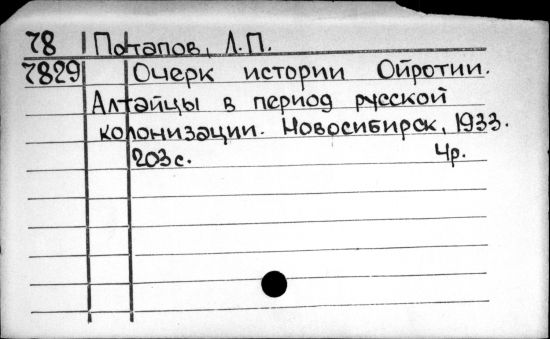 78 Потапов, Л.П.
7829 Очерк истории Ойротии.
Алтайцы в период русской
колонизации. Новосибирск, 1933.
203с. 4р.